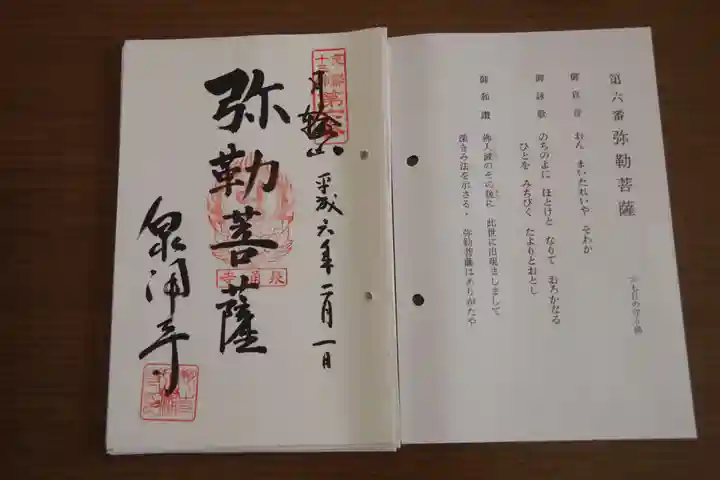 第六番 弥勒菩薩
御真言 おん まいたれいや そわか
御詠歌 のちのよに ほとけと なりて おろかなる
ひとを みちびく たよりとおとし
御和讃 佛入滅のその後に 此世に出現ましまして
深きみ法を示さる、 弥勒菩薩はありがたや
月輪山
平成六年二月一日
弥勒菩薩
泉涌寺
泉涌寺